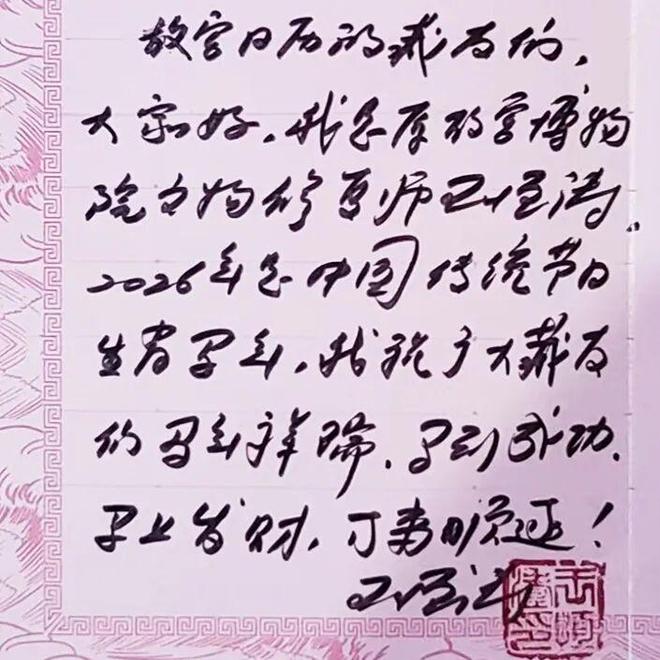 故宫日历的藏友们，
大家好，我是原故宫博物
院文物修复师王
2026年是中国传统节日
生肖马年，我祝广大藏友
们马年祥瑞，马到成功，
马上发财，万事顺遂！
王